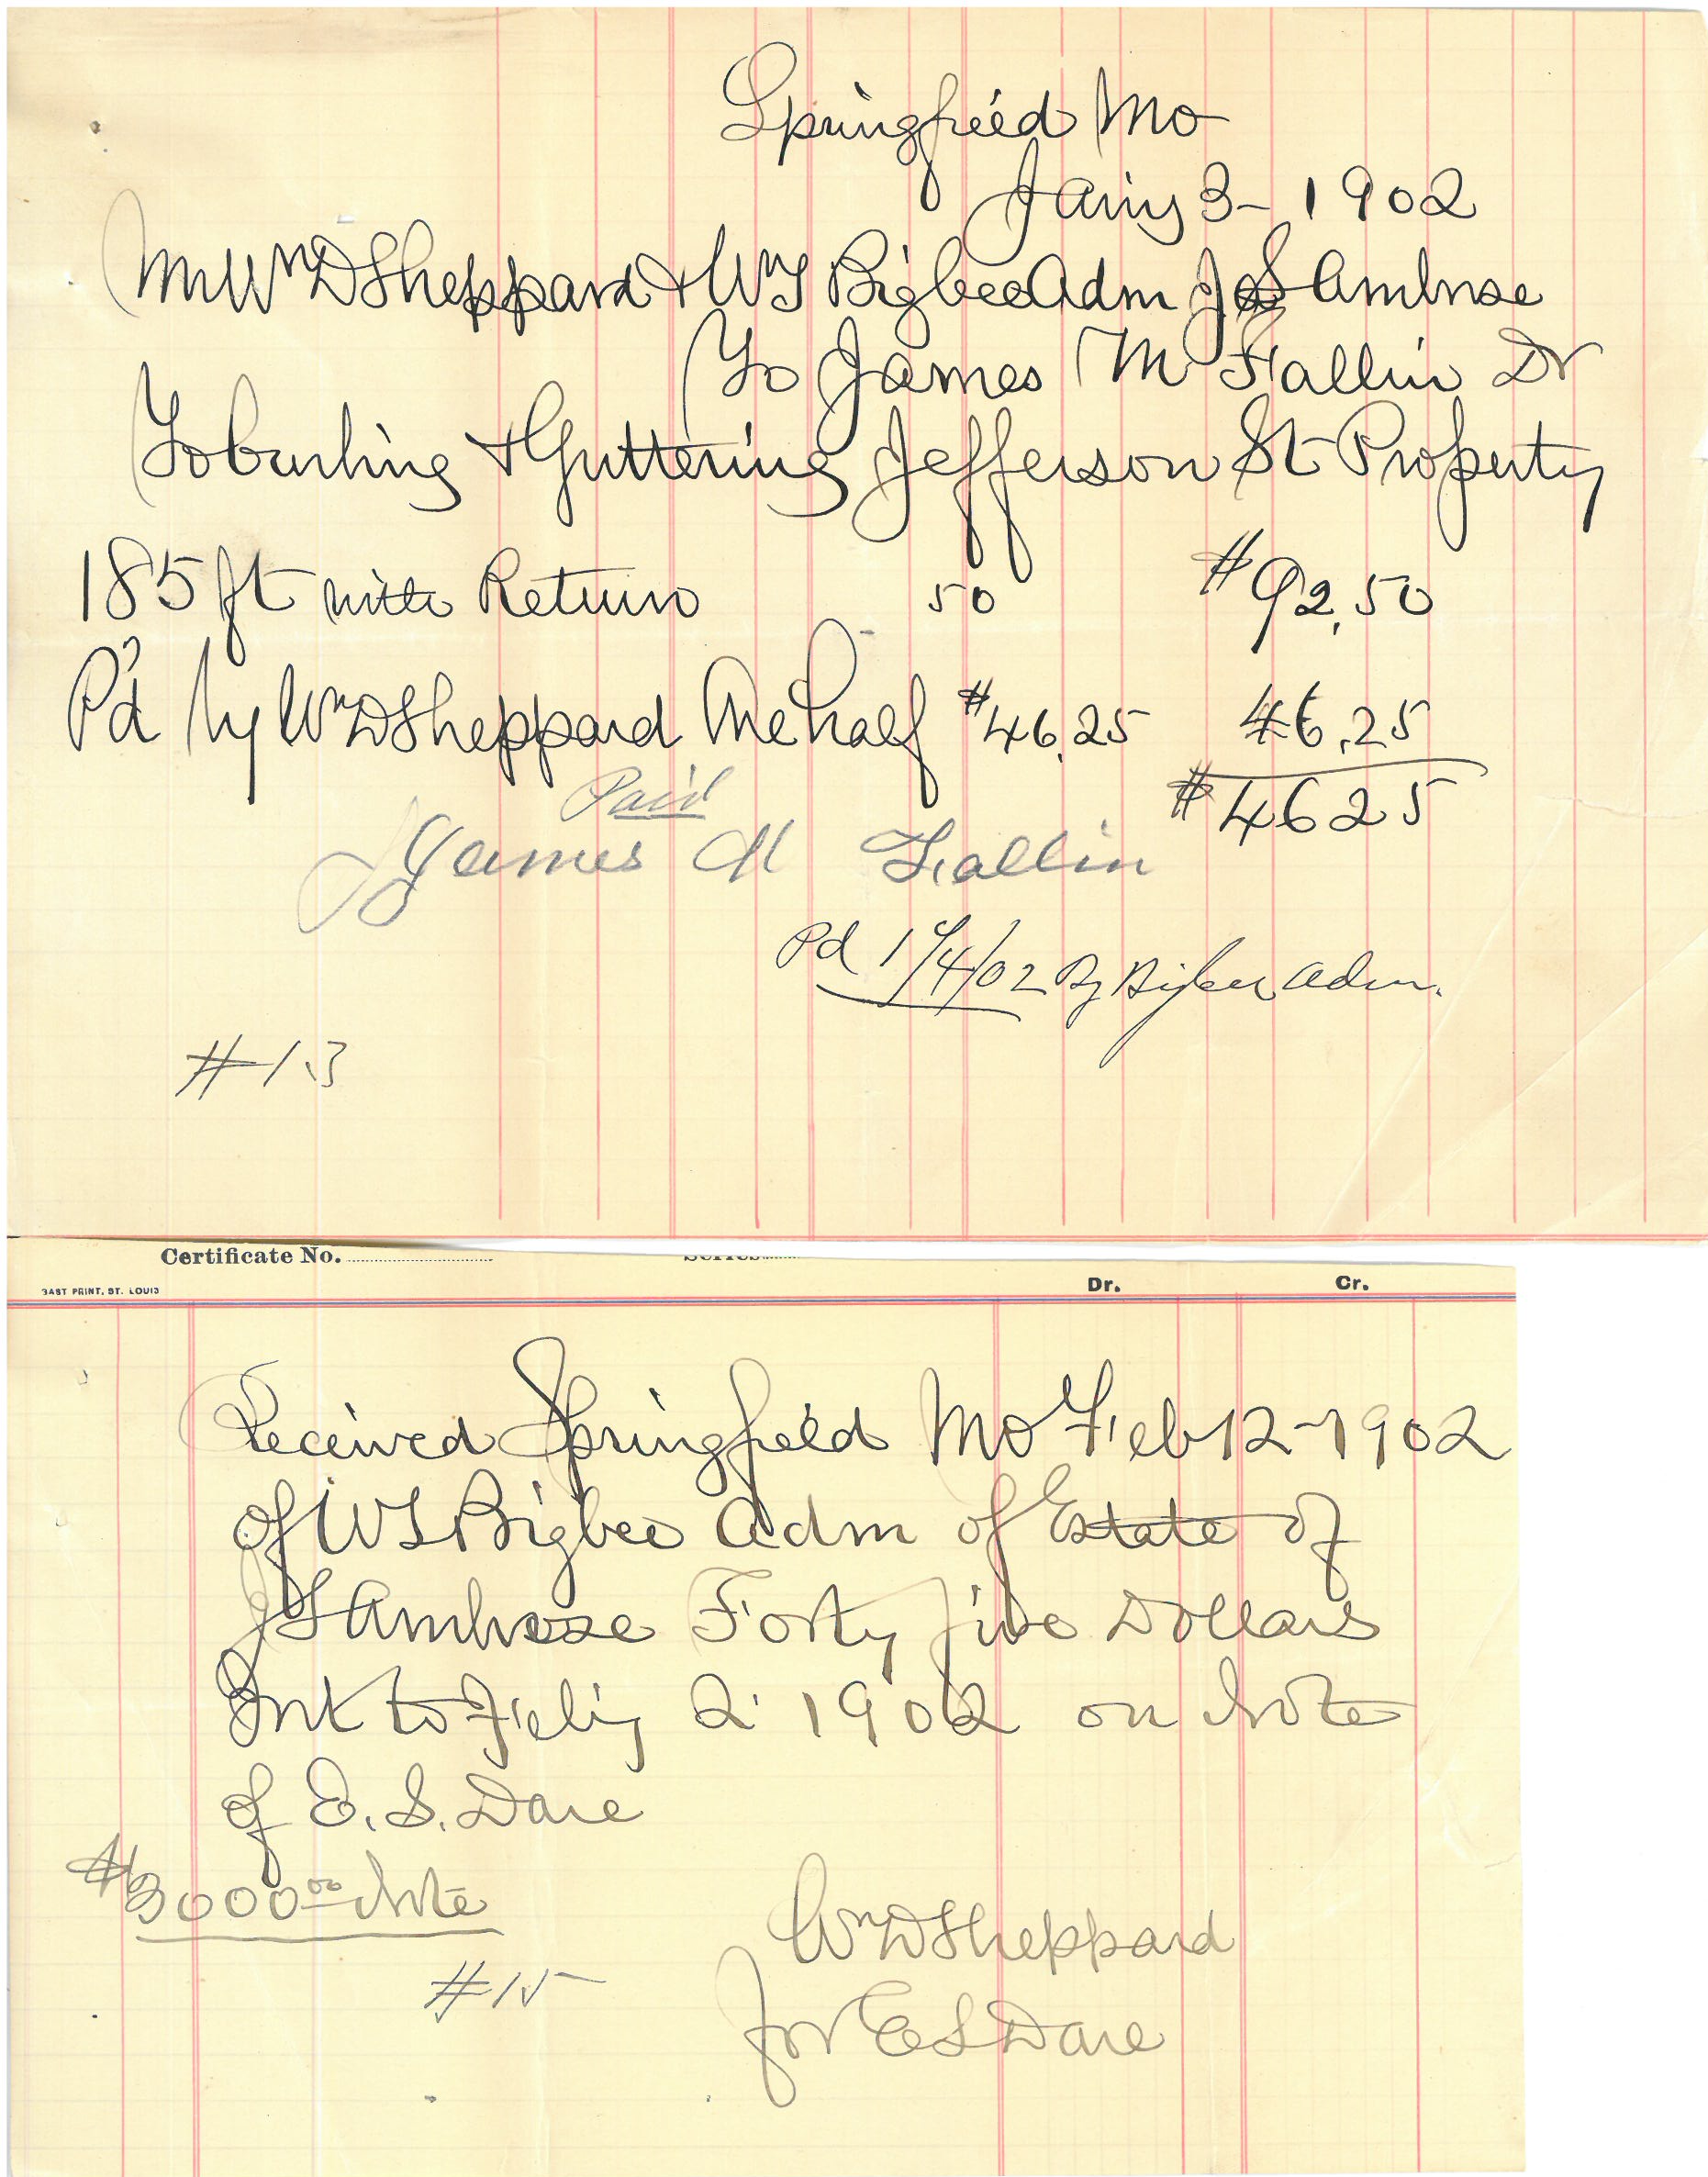 Springfield Mo
Jany 3 - 1902
Mr Wm D Sheppard & W S Bigbee Adm J S Ambrose
To James M Fallin Dr
To Curbing & Guttering Jefferson St Property
185 ft with Return 50 $92.50
Pd by Wm D Sheppard One half $46.25 46.25
$46 25
Paid
James M Fallin
Pd 1/4/02 By Bigbee Adm.
#13
Certificate No. Series
EAST PRINT. ST. LOUIS
Dr. Cr.
Received Springfield Mo Feb 12 - 1902
of W S Bigbee Adm of Estate of
J S Ambrose Forty five Dollars
Int to Feby 2 1902 on Note
of E. S. Dare
$3000 00 Note
Wm D Sheppard
#15
for E S Dare